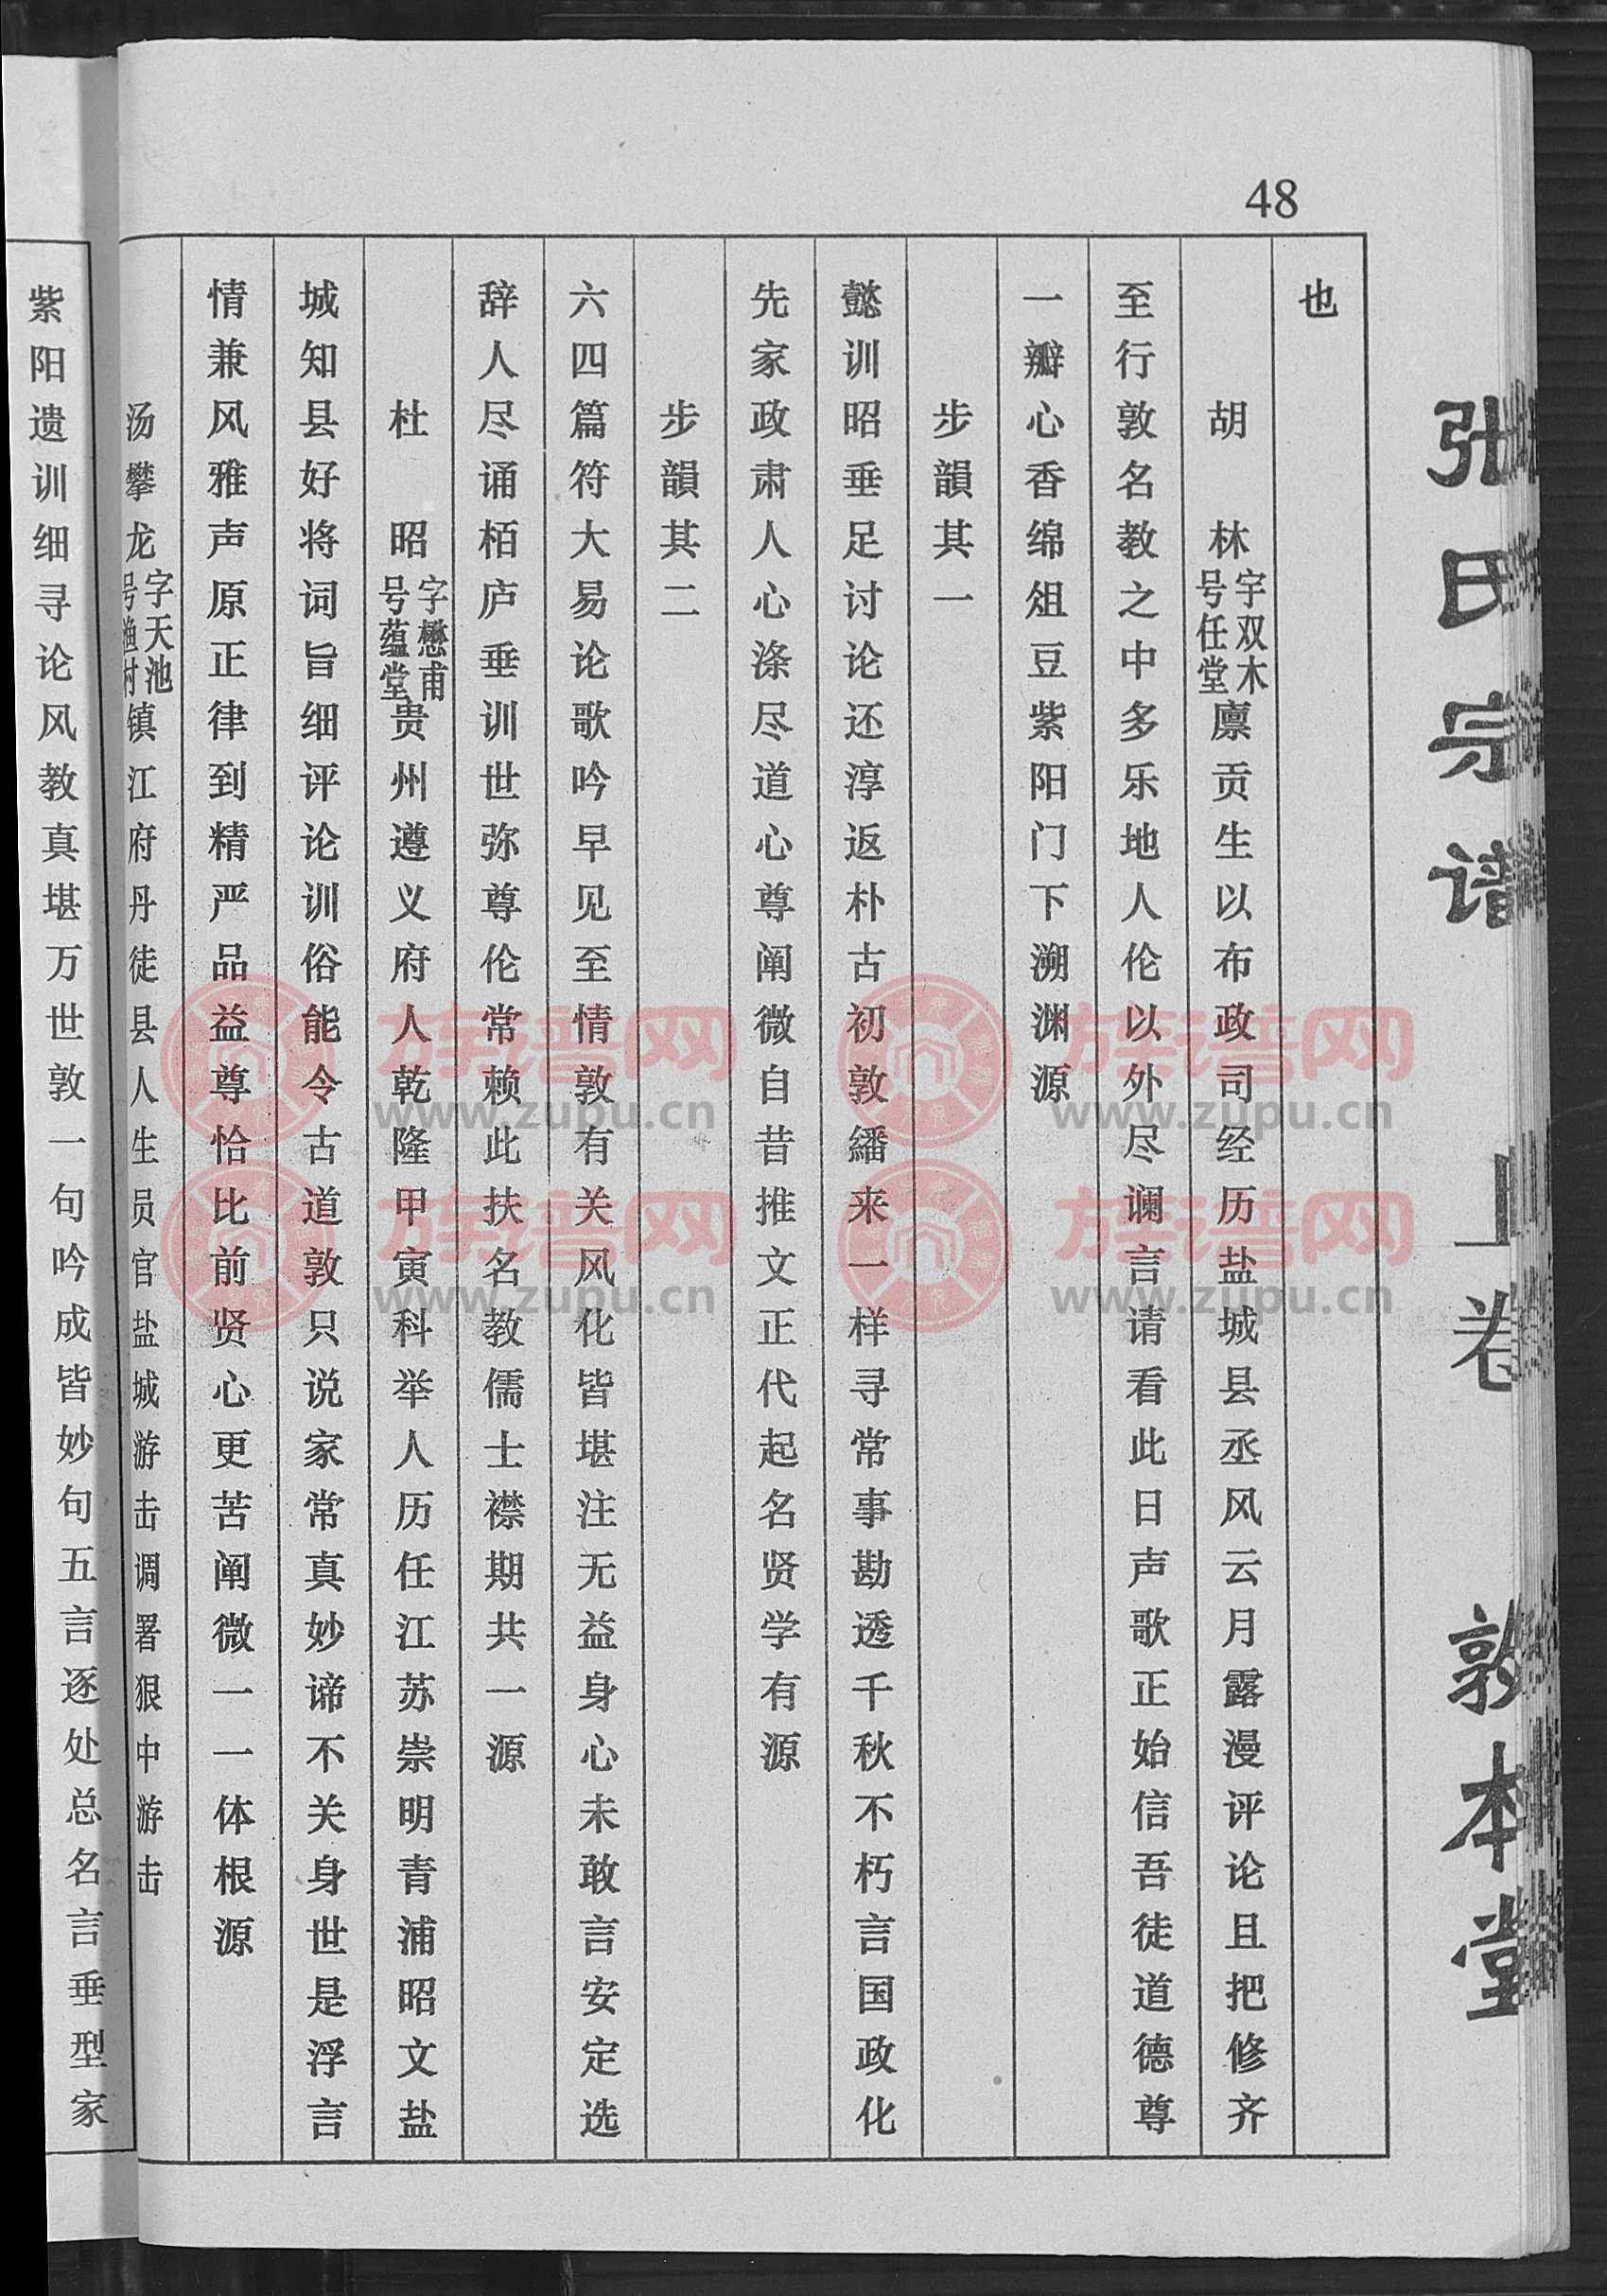 48
张氏宗谱 上卷 敦本堂
也
胡 林 字双木 号任堂 廪贡生以布政司经历盐城县丞风云月露漫评论且把修齐
至行敦名教之中多乐地人伦以外尽谰言请看此日声歌正始信吾徒道德尊
一瓣心香绵俎豆紫阳门下溯渊源
步韻其一
懿训昭垂足讨论还淳返朴古初敦繙来一样寻常事勘透千秋不朽言国政化
先家政肃人心涤尽道心尊阐微自昔推文正代起名贤学有源
步韻其二
六四篇符大易论歌吟早见至情敦有关风化皆堪注无益身心未敢言安定选
辞人尽诵栢庐垂训世弥尊伦常赖此扶名教儒士襟期共一源
杜 昭 字懋甫 号蕴堂 贵州遵义府人乾隆甲寅科举人历任江苏崇明青浦昭文盐
城知县好将词旨细评论训俗能令古道敦只说家常真妙谛不关身世是浮言
情兼风雅声原正律到精严品益尊恰比前贤心更苦阐微一一体根源
汤攀龙 字天池 号渔村 镇江府丹徒县人生员官盐城游击调署狠中游击
紫阳遗训细寻论风教真堪万世敦一句吟成皆妙句五言逐处总名言垂型家
族谱网
www.zupu.cn
族谱网
www.zupu.cn
族谱网
www.zupu.cn
族谱网
www.zupu.cn